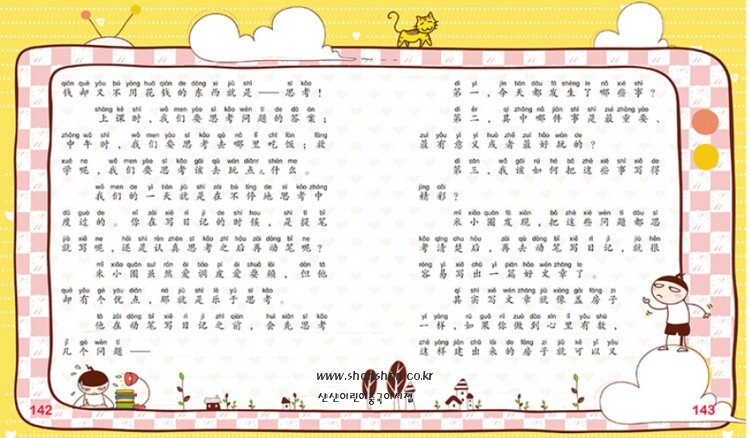 qián què yòu bú yòng huā qián de dōng xi jiù shì sī kǎo
钱却又不用花钱的东西就是——思考！
shàng kè shí wǒ men yào sī kǎo wèn tí de dá àn
上课时，我们要思考问题的答案；
zhōng wǔ shí wǒ men yào sī kǎo qù nǎ lǐ chī fàn fàng
中午时，我们要思考去哪里吃饭；放
xué ne wǒ men yào sī kǎo gāi qù wán diǎnr shén me
学呢，我们要思考该去玩点儿什么。
wǒ men de yì tiān jiù shì zài bù tíng de sī kǎo zhōng
我们的一天就是在不停地思考中
dù guò de nǐ zài xiě rì jì de shí hou shì tí bǐ
度过的。你在写日记的时候，是提笔
jiù xiě ne hái shì rèn zhēn sī kǎo zhī hòu zài dòng bǐ ne
就写呢，还是认真思考之后再动笔呢？
mǐ xiǎo quān suī rán ài tiáo pí ài shuǎ lài dàn tā
米小圈虽然爱调皮爱耍赖，但他
què yǒu gè yōu diǎn nà jiù shì lè yú sī kǎo
却有个优点，那就是乐于思考。
tā zài dòng bǐ xiě rì jì zhī qián huì xiān sī kǎo
他在动笔写日记之前，会先思考
jǐ gè wèn tí
几个问题——
dì yī jīn tiān dōu fā shēng le nǎ xiē shì
第一，今天都发生了哪些事？
dì èr qí zhōng nǎ jiàn shì shì zuì zhòng yào
第二，其中哪件事是最重要、
zuì yǒu yì yì huò zhě zuì hǎo wán de
最有意义或者最好玩的？
dì sān wǒ gāi rú hé bǎ zhè xiē shì xiě de
第三，我该如何把这些事写得
jīng cǎi
精彩？
mǐ xiǎo quān fā xiàn bǎ zhè xiē wèn tí dōu sī
米小圈发现，把这些问题都思
kǎo qīng chu hòu zài qù dòng bǐ xiě rì jì jiù hěn
考清楚后，再去动笔写日记，就很
róng yì xiě chū yì piān hǎo wén zhāng le
容易写出一篇好文章了。
qí shí xiě wén zhāng jiù xiàng gài fáng zi
其实写文章就像盖房子
yí yàng rú guǒ nǐ zuò dào xīn lǐ yǒu shù
一样，如果你做到心里有数，
zhè yàng jiàn chū lái de fáng zi jiù kě yǐ yòu
这样建出来的房子就可以又
www.shanshan.co.kr
142
143